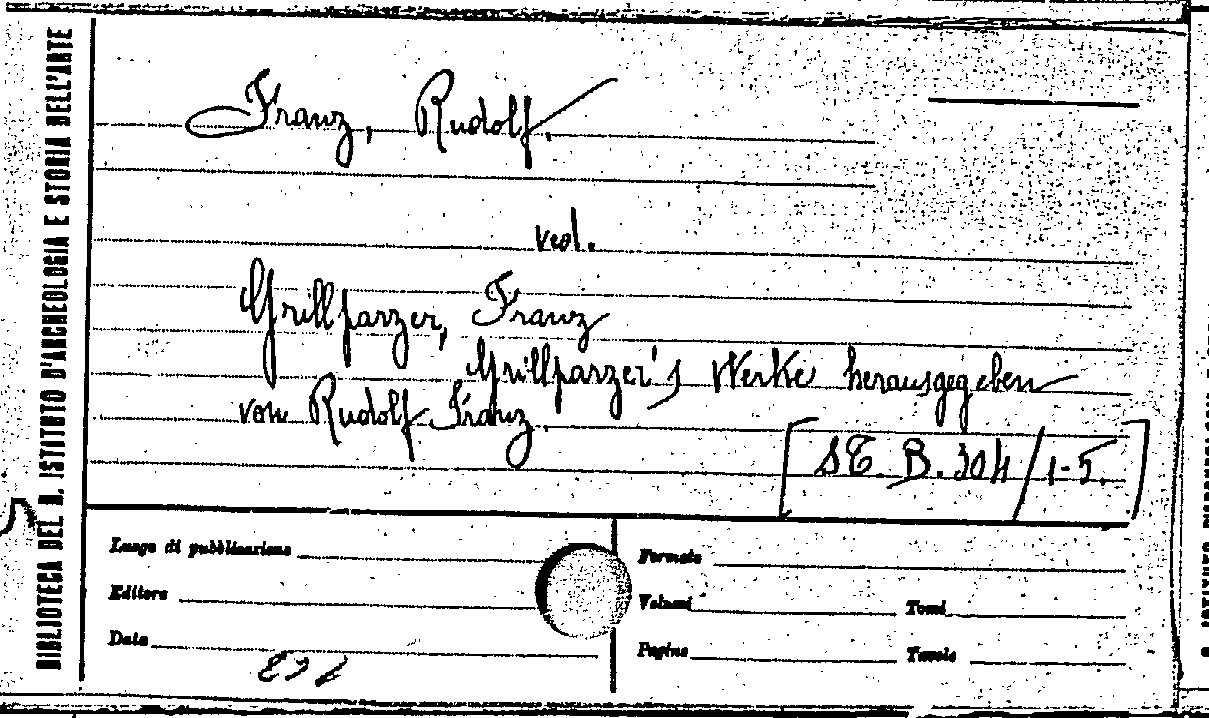 BIBLIOTECA DEL R. ISTITUTO D'ARCHEOLOGIA E STORIA DELL'ARTE
Franz, Rudolf.
ved.
Grillparzer, Franz
Grillparzer's Werke herausgegeben
von Rudolf Franz.
[ST. B. 304/1-5.]
Luogo di pubblicazione
Editore
Data
Formato
Volumi
Tomi
Pagine
Tavole